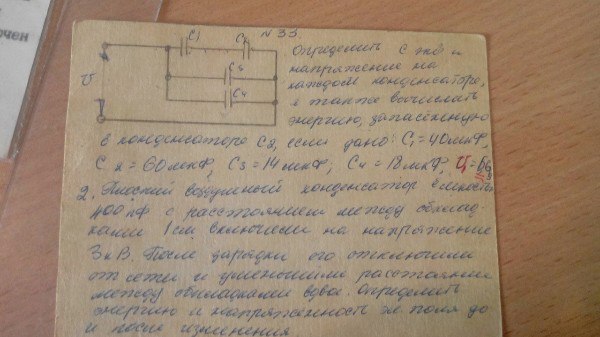 чен
№ 33
C1
C2
C3
C4
U
Определить C экв и
напряжение на
каждом конденсаторе,
а также вычислить
энергию, запасённую
в конденсаторе C3, если дано: C1=40мкФ,
C2=60мкФ, C3=14мкФ, C4=12мкФ,
2. Плоский воздушный конденсатор ёмкостью
400 пФ с расстоянием между обклад-
ками 1см включили на напряжение
3кВ. После зарядки его отключили
от сети и уменьшили расстояние
между обкладками вдвое. Определить
энергию и напряжённость эл поля до
и после изменения